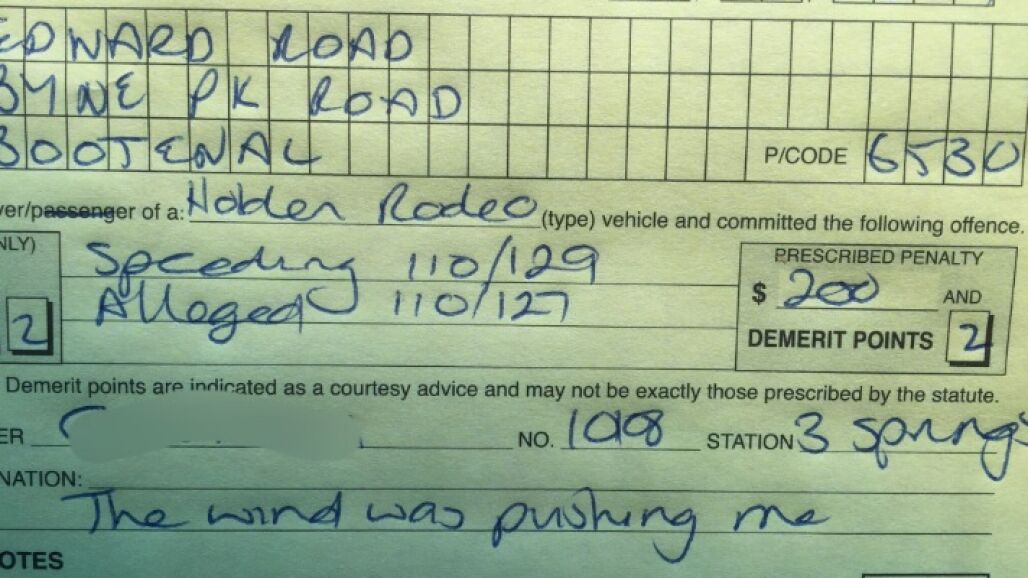 EDWARD ROAD
BYNE PK ROAD
BOOTENAL P/CODE 6530
ver/passenger of a: Holden Rodeo (type) vehicle and committed the following offence.
NLY)
Speeding 110/129
Alleged 110/127
2
PRESCRIBED PENALTY
$ 200 AND
DEMERIT POINTS 2
Demerit points are indicated as a courtesy advice and may not be exactly those prescribed by the statute.
ER NO. STATION 3 Springs
NATION:
The wind was pushing me
OTES